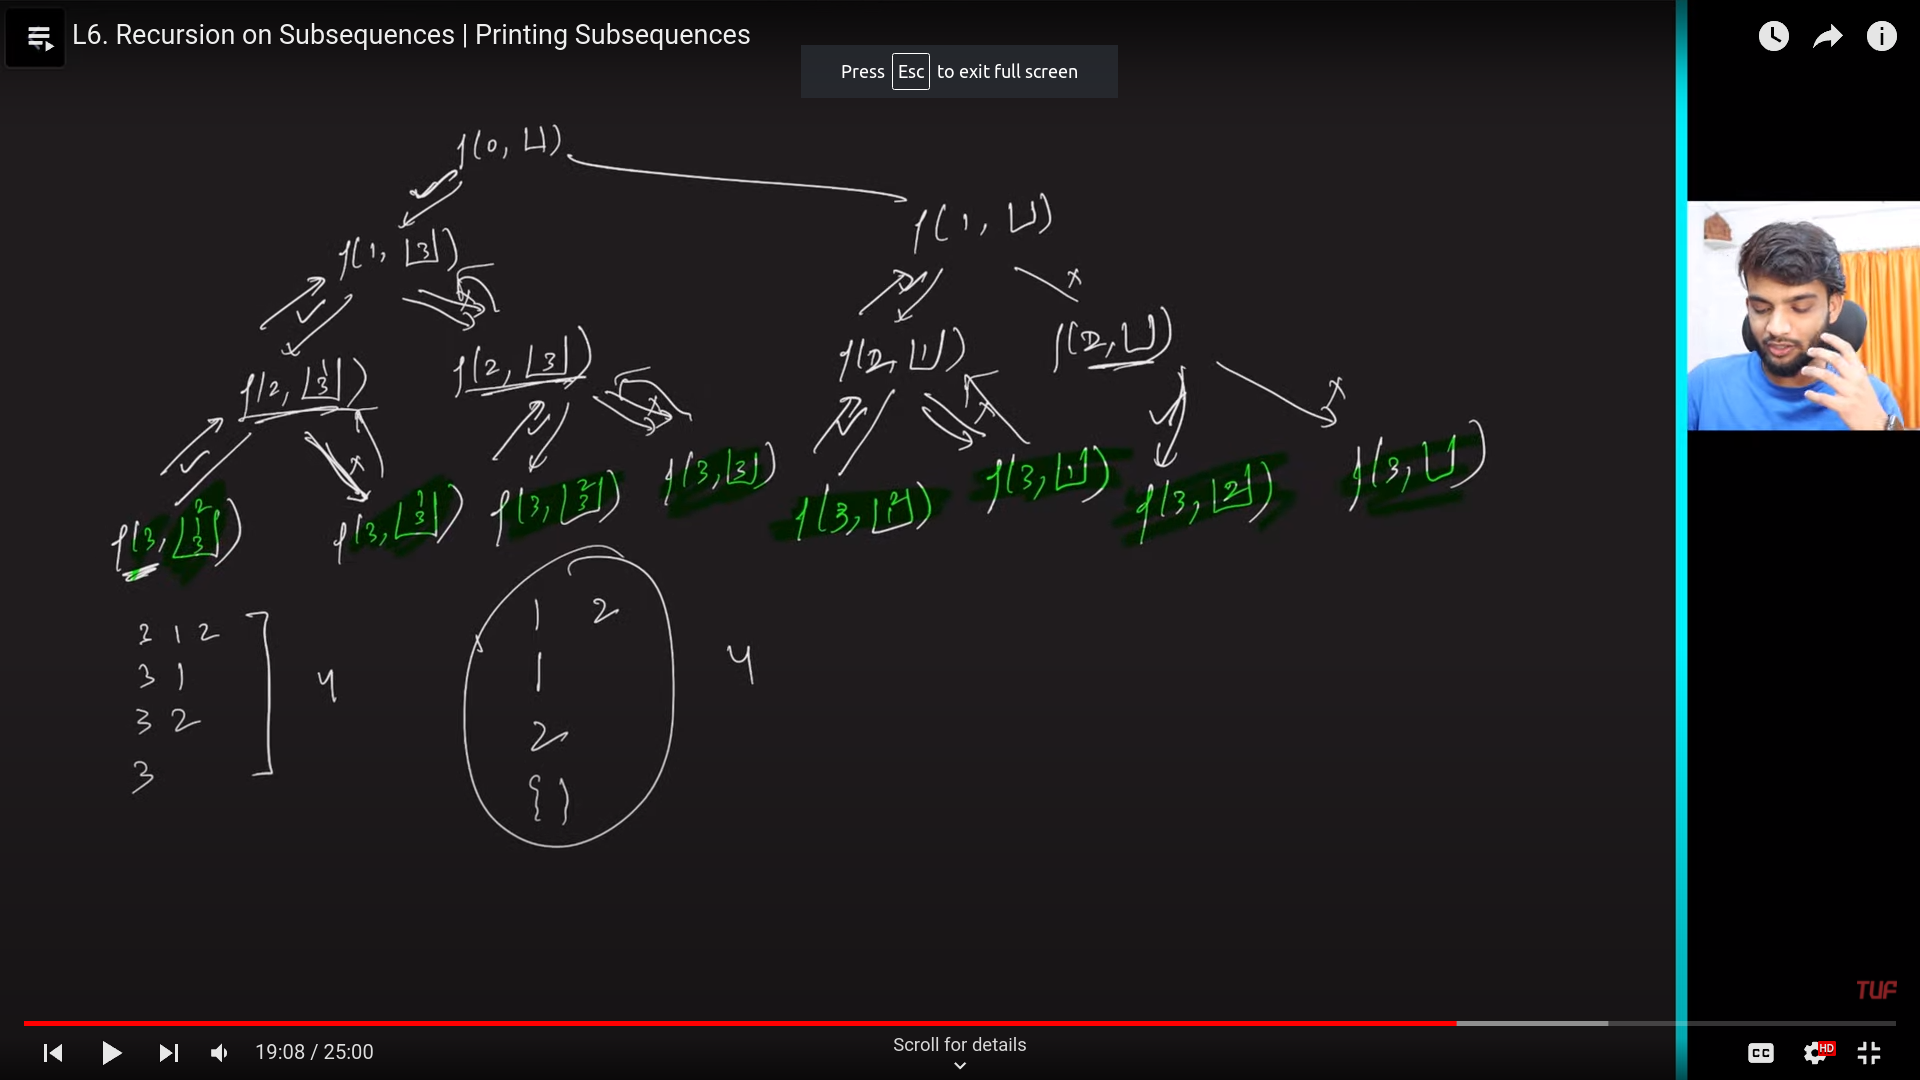 L6. Recursion on Subsequences | Printing Subsequences
Press Esc to exit full screen
f(0, [])
f(1, [])
f(1, [3])
f(2, [1 3])
f(2, [3])
f(2, [1])
f(2, [])
f(3, [2 1 3])
f(3, [1 3])
f(3, [2 3])
f(3, [3])
f(3, [2 1])
f(3, [1])
f(3, [2])
f(3, [])
3 1 2
3 1
3 2
3
4
1 2
1
2
{}
4
TUF
19:08 / 25:00
Scroll for details
CC
HD